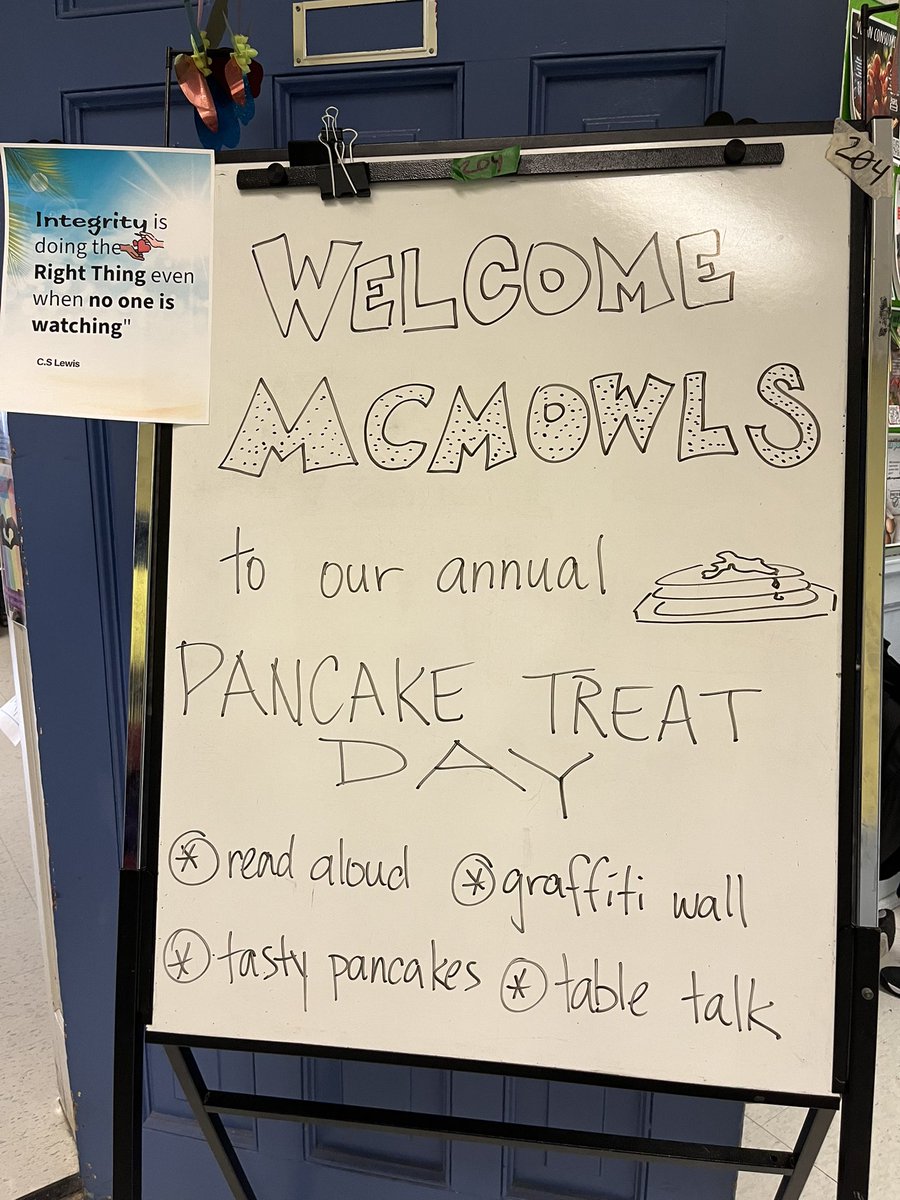 204
204
Integrity is
doing the
Right Thing even
when no one is
watching"
C.S Lewis
WELCOME
MCMOWLS
to our annual
PANCAKE TREAT
DAY
* read aloud * graffiti wall
* tasty pancakes * table talk